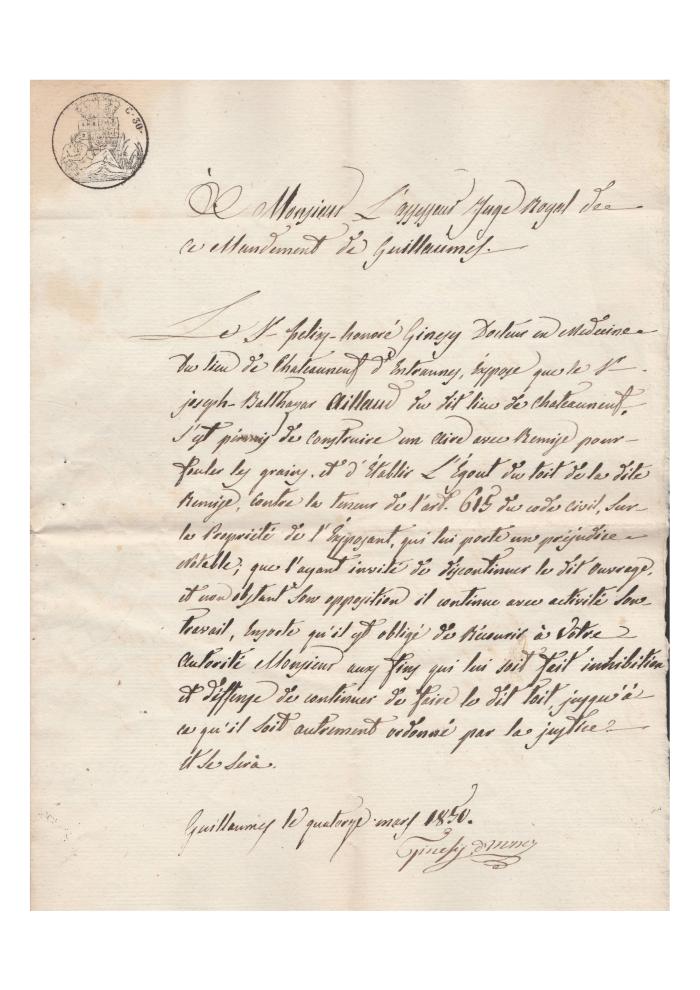 C. 50.
À Monsieur L'assesseur Juge Royal de
ce Mandement de Guillaumes.
Le Sr felix-honoré Ginesy Docteur en Medecine
du lieu de Chateauneuf d'Entraunes, Expose que le Sr
joseph-Balthazar Aillaud du dit lieu de Chateauneuf,
s'est permis de construire un aire avec Remise pour
fouler les grains, et d'Etablir L'Egout du toit de la dite
Remise, contre la teneur de l'ard. 615 du code civil, sur
la Propriété de l'Exposant, qui lui porte un préjudice
Notable; que l'ayant invité de discontinuer le dit ouvrage,
et non obstant son opposition il continue avec activité son
travail, Ensorte qu'il est obligé de Récourir à Votre
Autorité Monsieur aux fins qui lui soit fait inhibition
et deffense de continuer de faire le dit toit, jusqu'à
ce qu'il soit autrement ordonné par la justice
et se serà.
Guillaumes le quatorze mars 1850.
Ginesy